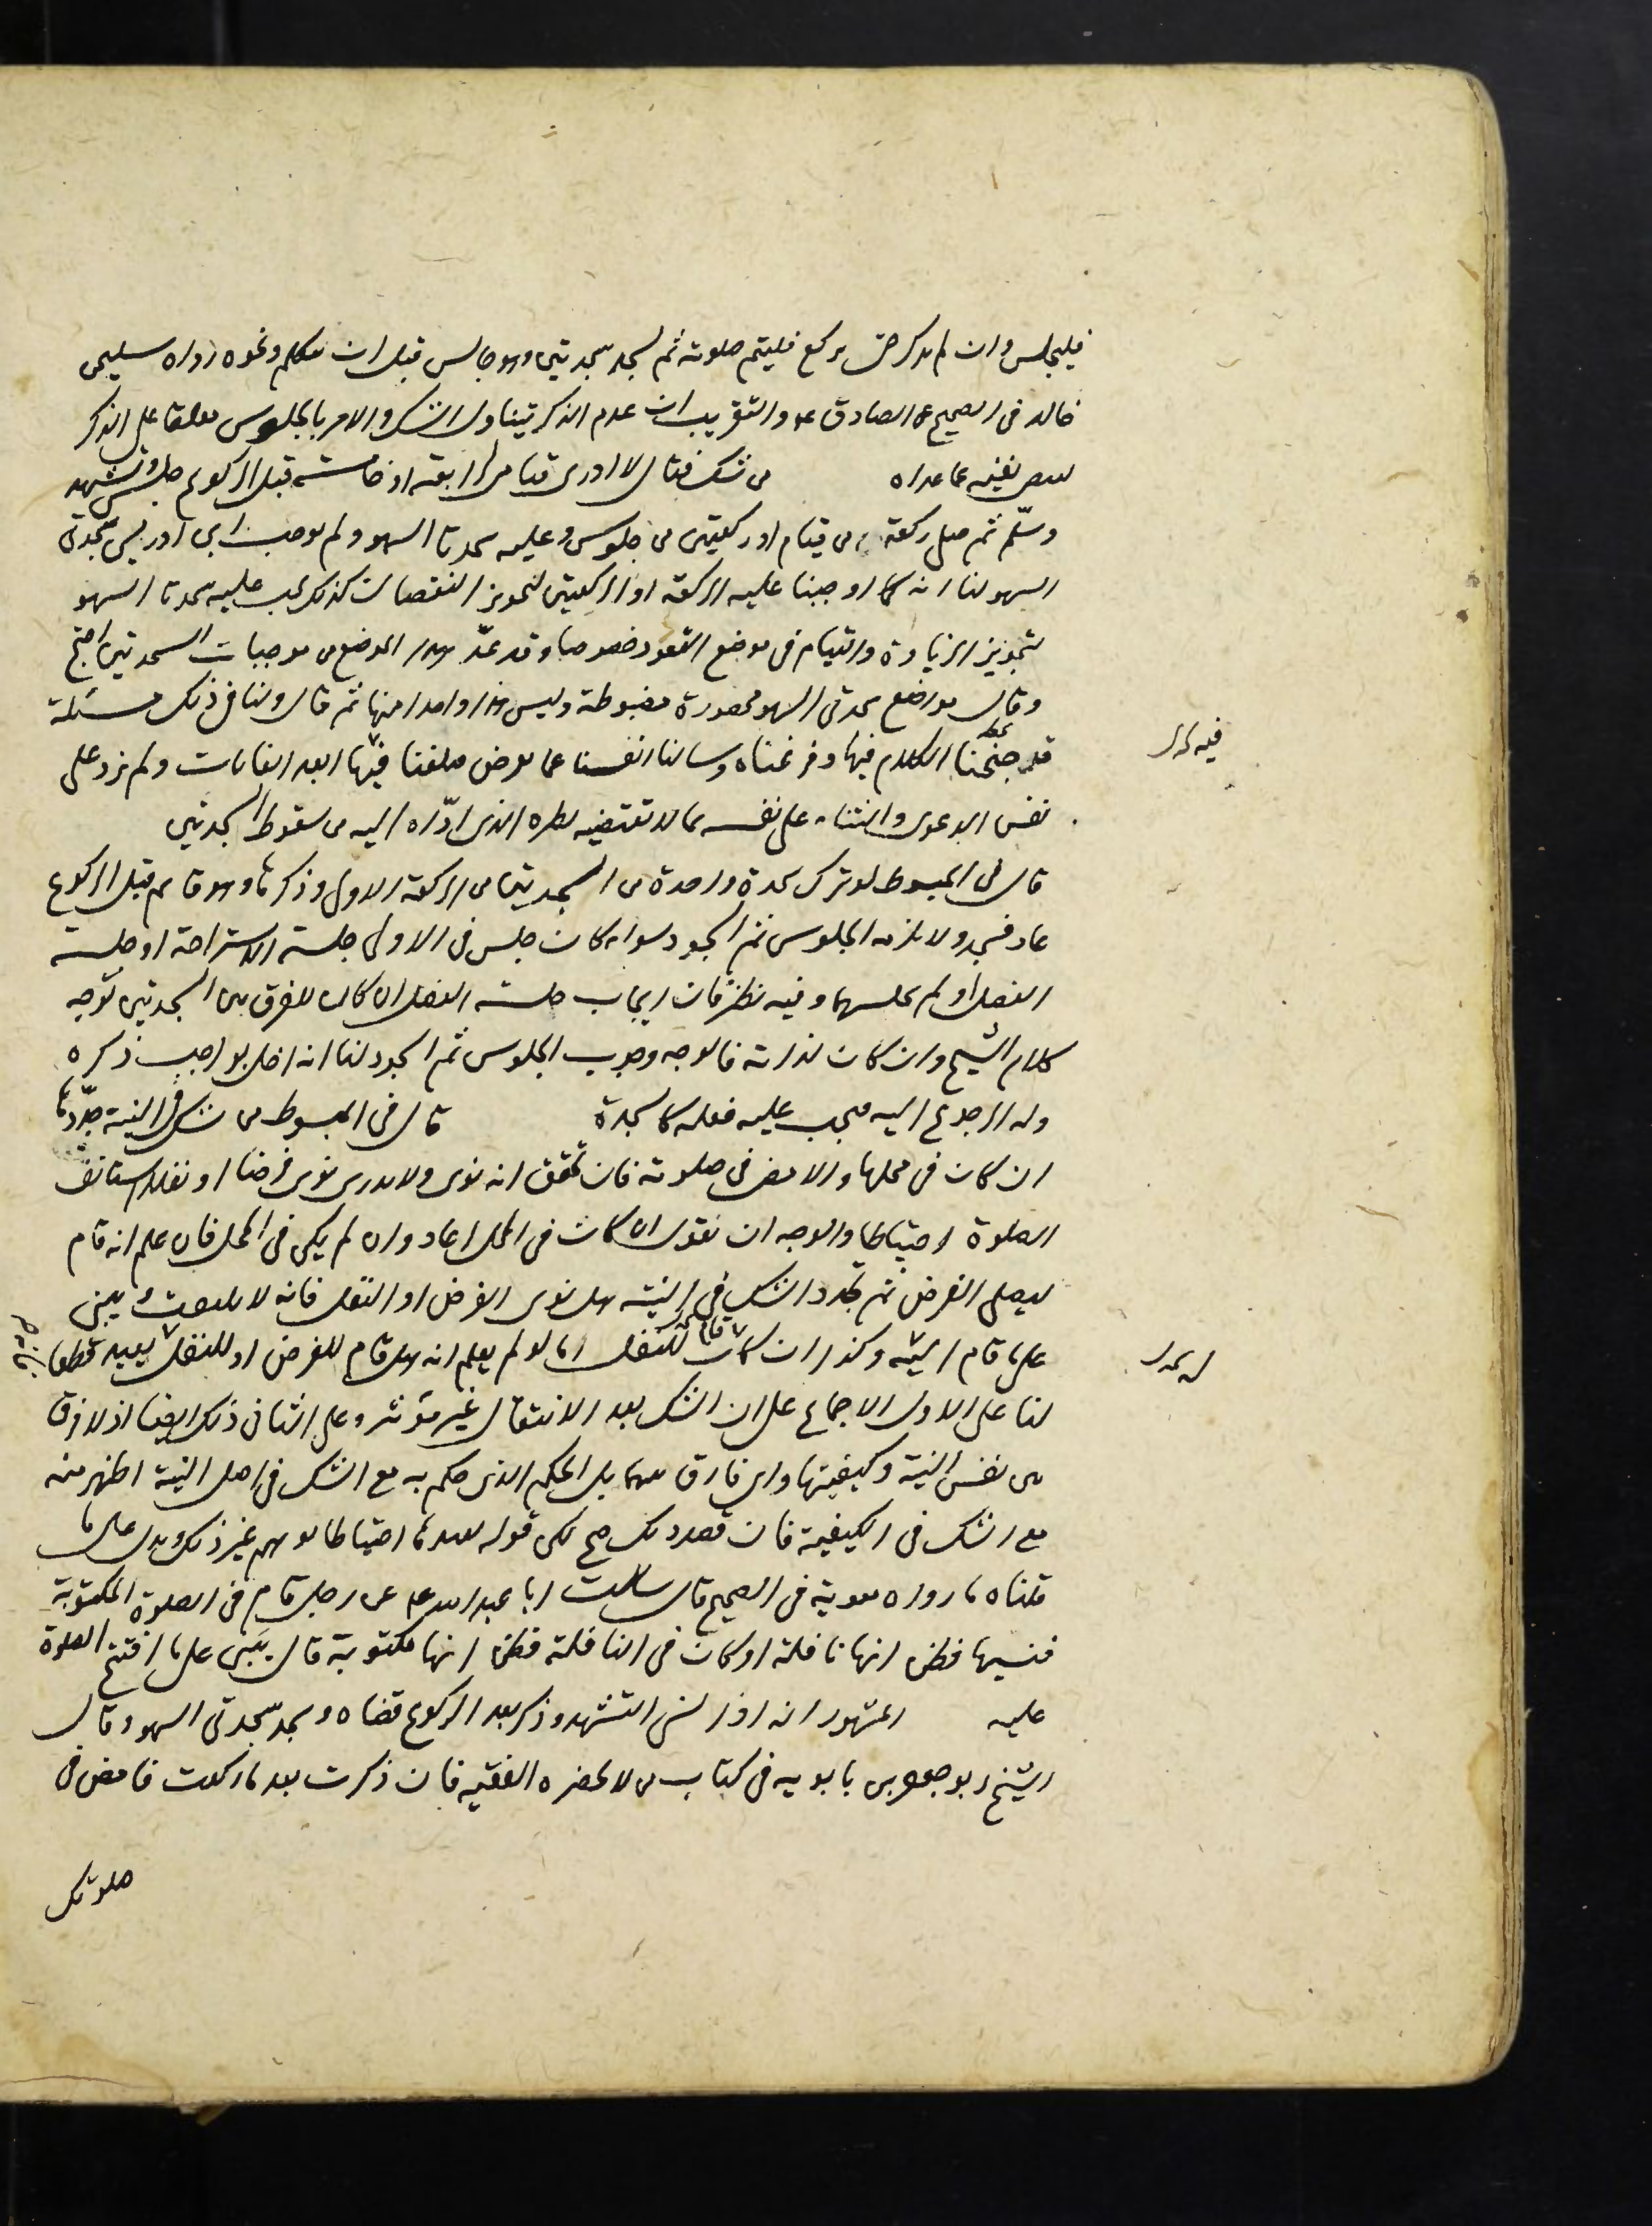 فليجلس وان لم يذكر حتى يركع فليتم صلوته ثم يسجد سجدتين وهو جالس قبل ان يتكلم ونحوه رواه سليمن
خالد في الصحيح عن الصادق ع والتقريب ان عدم الذكر يتناول الشك والامر بالجلوس معلقا على الذكر
نفيه عما عداه من شك فقال لا ادري قيامي لرابعة او خامسة قبل الركوع جلس وتشهد
وسلّم ثم صلى ركعة من قيام او ركعتين من جلوس وعليه سجدتا السهو ولم يوجب ابن ادريس سجدتي
السهو لنا انه كما اوجبنا عليه الركعة او الركعتين لتجويز النقصان كذلك يجب عليه سجدتا السهو
لتجويز الزيادة والقيام في موضع القعود خصوصا وقد عدّ هذا الموضع من موجبات السجدتين احتج
وقال مواضع سجدتي السهو محصورة مضبوطة وليس هذا واحدا منها ثم قال ولنا في ذلك مسئلة
قد جنحنا الكلام فيها وفرغناه وسالنا انفسنا عما يعرض فيها ابعد الغايات ولم يزد على
نفس الدعوى والثناء على نفسه بما لا تقتضيه نظره الذي ادّاه اليه من سقوط السجدتين
قال في المبسوط لو ترك سجدة واحدة من السجدتين من الركعة الاولى وذكرها وهو قائم قبل الركوع
عاد فسجد ولا يلزمه الجلوس ثم السجود سواء كان جلس في الاولى جلسة الاستراحة او جلسة
الفصل او لم يجلسهما وفيه نظر فان ايجاب جلسة الفصل ان كان للفرق بين السجدتين توجه
كلام الشيخ وان كان لذاته فالوجه وجوب الجلوس ثم السجود لنا انه اخل بواجب ذكره
وله الرجوع اليه فيجب عليه فعله كالسجدة قال في المبسوط من شك في النية جدّدها
ان كان في محلها والا مضى في صلوته فان تحقق انه نوى ولا يدري نوى فرضا او نفلا استانف
الصلوة احتياطا والوجه ان نقول ان كان في المحل اعاد وان لم يكن في المحل فان علم انه قام
ليصلي الفرض ثم تجدد الشك في النية هل نوى الفرض او النفل فانه لا يلتفت ويبني
على ما قام اليه وكذا ان كان قام للنفل اما لو لم يعلم انه هل قام للفرض او للنفل يعيد قطعا
لنا على الاول الاجماع على ان الشك بعد الانتقال غير مؤثر وعلى الثاني ذلك ايضا اذ لا فرق
بين نفس النية وكيفيتها واي فارق بينهما بل الحكم الذي حكم به مع الشك في اصل النية اظهر منه
مع الشك في الكيفية فان قصد ذلك صح لكن قوله احتياطا يوهم غير ذلك ويدل على ما
قلناه ما رواه معوية في الصحيح قال سالت ابا عبد الله ع عن رجل قام في الصلوة المكتوبة
فنسيها فظن انها نافلة او كان في النافلة فظن انها مكتوبة قال يبني على ما افتتح الصلوة
عليه المشهور انه اذا نسي التشهد وذكر بعد الركوع قضاه وسجد سجدتي السهو وقال
الشيخ ابو جعفر بن بابويه في كتاب من لا يحضره الفقيه فان ذكرت بعد ما ركعت فامض في
صلوتك